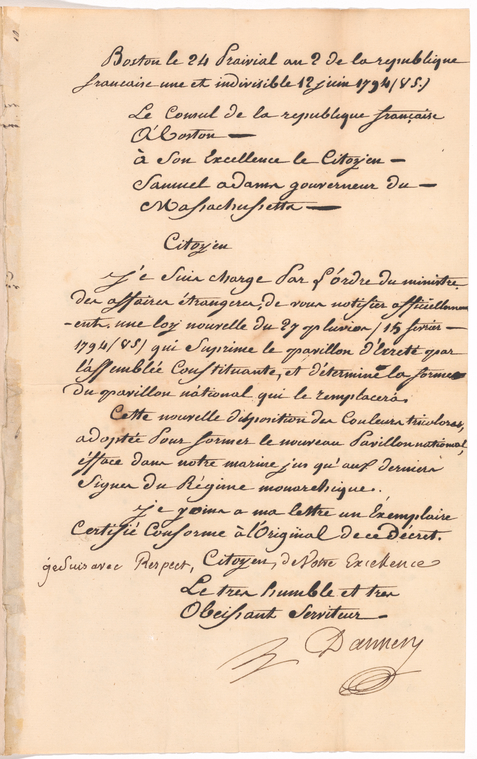 Boston le 24 Prairial an 2 de la republique
francaise une et indivisible 12 juin 1794 (V.S.)
Le Consul de la republique française
A Boston —
à Son Excellence le Citoyen —
Samuel adams gouverneur du —
Massachussetts —
Citoyen
Je Suis chargé Par L'ordre du ministre
des affaires étrangeres, de vous notifier officiellem
-ent. une loy nouvelle du 27 pluviose (15 fevrier —
1794 (V.S) qui Suprime le pavillon décreté par
l'assemblée Constituante, et détermine la forme
du pavillon national qui le remplacera.
Cette nouvelle disposition des Couleurs tricolores,
adoptée Pour former le nouveau Pavillon national,
efface dans notre marine jus qu'aux derniers
Signes du Régime monarchique.
Je joins a ma lettre un Exemplaire
Certifié Conforme à l'Original de ce Décret.
je Suis avec Respect, Citoyen, de Votre Excellence
Le tres humble et tres
Obeissant Serviteur —
Dannery